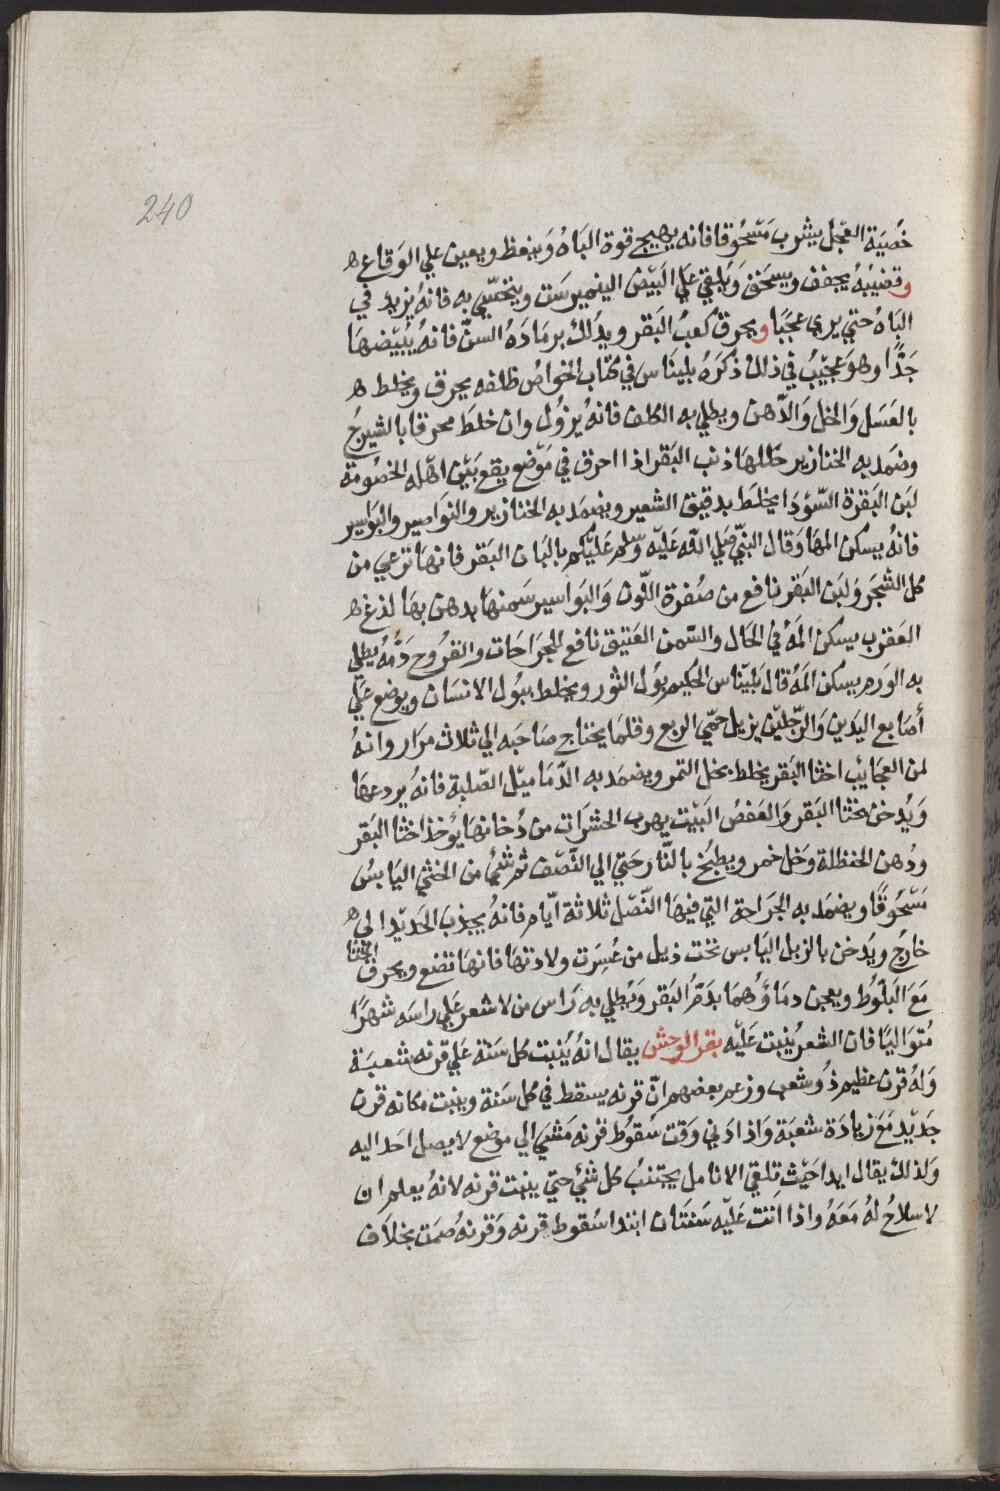 240
خُصيَة العجْل يشرب مَسْحُوقا فانه يهيج قوة البَاهُ وَينعظ ويعين علي الوَقاع ه
وقضيبُهُ يجفف ويسحَق وَيُلقي عَلَي البَيْض النيمبرسَت ويتحسّي به فانهُ يزيد في
البَاهُ حتي يري عجبًا ويحرق كعبُ البَقر ويدلك برمَادَهُ السنّ فانهُ يُبيّضهَا
جَدًّا وهوَ عجيْبُ في ذلك ذكرَهُ بلينَاس في كتاب الخواصُ ظلفه يحرق ويخلط ه
بالعَسَل وَالخل وَالدّهن ويطلي به الكلف فانهُ يزوُل وان خلطَ محرقا بالشيرجُ
وضمَد به الخنازير حللهَا ذنب البَقر اذا احرق في مَوْضع يقع بَيْن اهْله الخصُومَة
لبَن البَقرَة السّوْدَا يخلط بدقيق الشعير ويضمَد به الخنازير والنوَاصير والبوَاسير
فانهُ يسكن المهَا وَقال النبيّ صَلي اللّه عَليْه وسّلم عَليْكم بالبَان البَقر فانهَا ترعي من
كل الشجَر وَلبَن البَقر نافع من صُفرة اللّون وَالبَواسير سَمنهَا يدهن بهَا لذغ ه
العَقرب يسكن المَهُ في الحَال والسّمن العَتيق نافع للجرَاحَات والقرُوح دَمُهُ يطلي
به الوَرم يسكن المَهُ قال بَليْنَاس الحكيم بوُل الثور ويخلط ببُول الانسَان ويوضع عَلَي
أصَابع اليدَين وَالرّجليْن يزيل حمّي الربع وقلمَا يحتاج صَاحبَه الي ثلاث مرَار وانهُ
لمن العجَايْب اخثا البَقر يخلط بخل التمر ويضمَد به الدّمَاميْل الصّلبة فانهُ يردعهَا
وَيُدخن بخثا البَقر وَالعَفصُ البَيْت يهرب الحشرَات من دُخانهَا يؤخذ اخثا البَقر
ودُهن الحنظلة وَخل خمر ويطبُخ بالنّار حَتي الي النّصْف ثم شئُ من الخثي اليَابسُ
مَسْحُوقًا ويضمَد به الجرَاحة التي فيهَا النّصْل ثلاثة أيّام فانهُ يجذبَ الحَديْد الي ه
خارجُ ويُدخن بالزبل اليَابس تحَت ذيل من عُسِرَت ولادتهَا فانهَا تضع ويحرق اخثا
مَعَ البَلوُط ويعجن دمَاؤُهمَا بدَمُ البَقر وَيُطلي به رَاس من لا شعر عَلَي راسَه شهرًا
مُتوَاليًا فان الشعر يُنبت عَليْه بقر الوحش يقال انهُ يُنبت كل سَنة عَلَي قرنه شعبَة
وَلهُ قرن عظيم ذُو شعب وزعم بعضهم انّ قرنه يسقط في كل سَنة وينبت مكانه قرن
جَديْد مَعَ زيادَة شعبَة وَاذا دَني وَقت سُقوُط قرنه مَشيَ الي موَضع لا يصل احَد اليه
وَلذلك يقال ابدا حَيْث تلقي الانامل يجتنبُ كل شئ حتي ينبت قرنه لانهُ يعلم ان
لا سلاحُ لهُ مَعَهُ واذا اَتت عَليْه سَنتَان ابتدا سُقوط قرنه وَقرنهُ صمَت بخلاَف